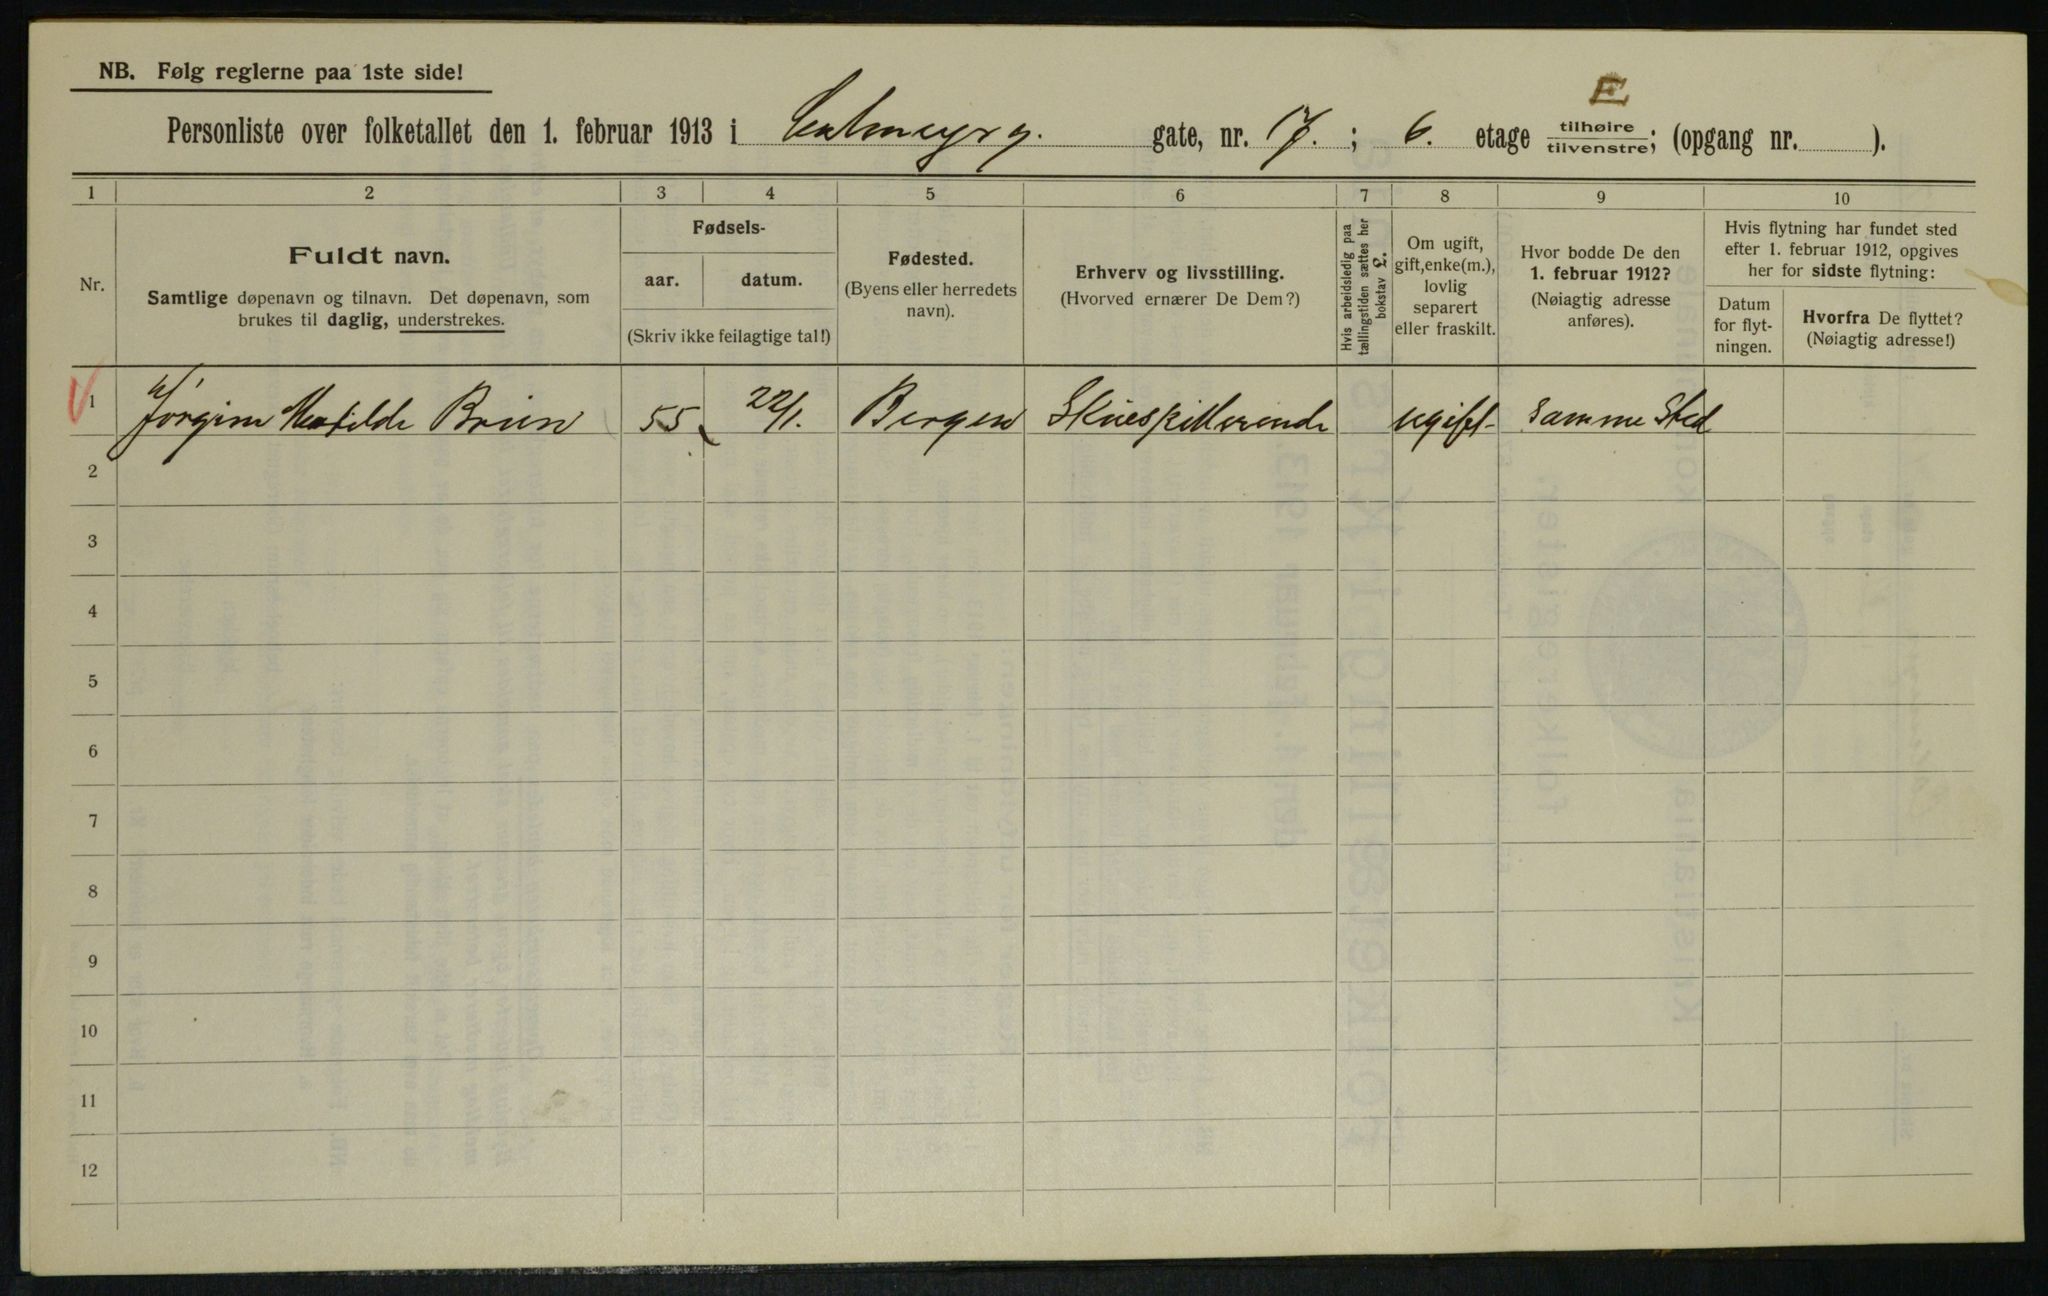 NB. Følg reglerne paa 1ste side!
E
Personliste over folketallet den 1. februar 1913 i Calmeyrg. gate, nr. 17. ; 6. etage tilhøire/tilvenstre; (opgang nr. ).
1 2 3 4 5 6 7 8 9 10
Nr.
Fuldt navn.
Samtlige døpenavn og tilnavn. Det døpenavn, som
brukes til daglig, understrekes.
Fødsels-
aar. datum.
(Skriv ikke feilagtige tal!)
Fødested.
(Byens eller herredets
navn).
Erhverv og livsstilling.
(Hvorved ernærer De Dem?)
Hvis arbeidsledig paa
tællingstiden sættes her
bokstav L.
Om ugift,
gift, enke(m.),
lovlig
separert
eller fraskilt.
Hvor bodde De den
1. februar 1912?
(Nøiagtig adresse
anføres).
Hvis flytning har fundet sted
efter 1. februar 1912, opgives
her for sidste flytning:
Datum
for flyt-
ningen.
Hvorfra De flyttet?
(Nøiagtig adresse!)
1 Jørgine Matilde Brun 55 22/1. Bergen Skuespillerinde ugift samme Sted
2
3
4
5
6
7
8
9
10
11
12